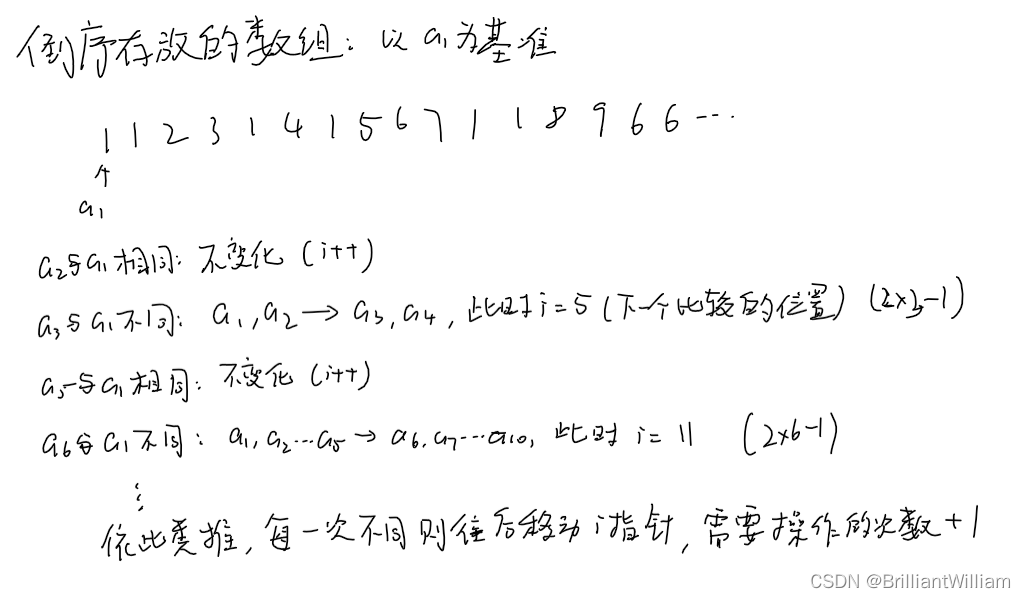 倒序存放的数组：以a₁为基准
1 1 2 3 1 4 1 5 6 7 1 1 8 9 6 6 ...
↑
a₁
a₂与a₁相同：不变化 (i++)
a₃与a₁不同：a₁,a₂→a₃,a₄，此时i=5（下一个比较的位置）(2×3-1)
a₅与a₁相同：不变化 (i++)
a₆与a₁不同：a₁,a₂...a₅→a₆,a₇...a₁₀，此时 i=11 (2×6-1)
⋮
依此类推，每一次不同则往后移动i指针，需要操作的次数+1
CSDN @BrilliantWilliam